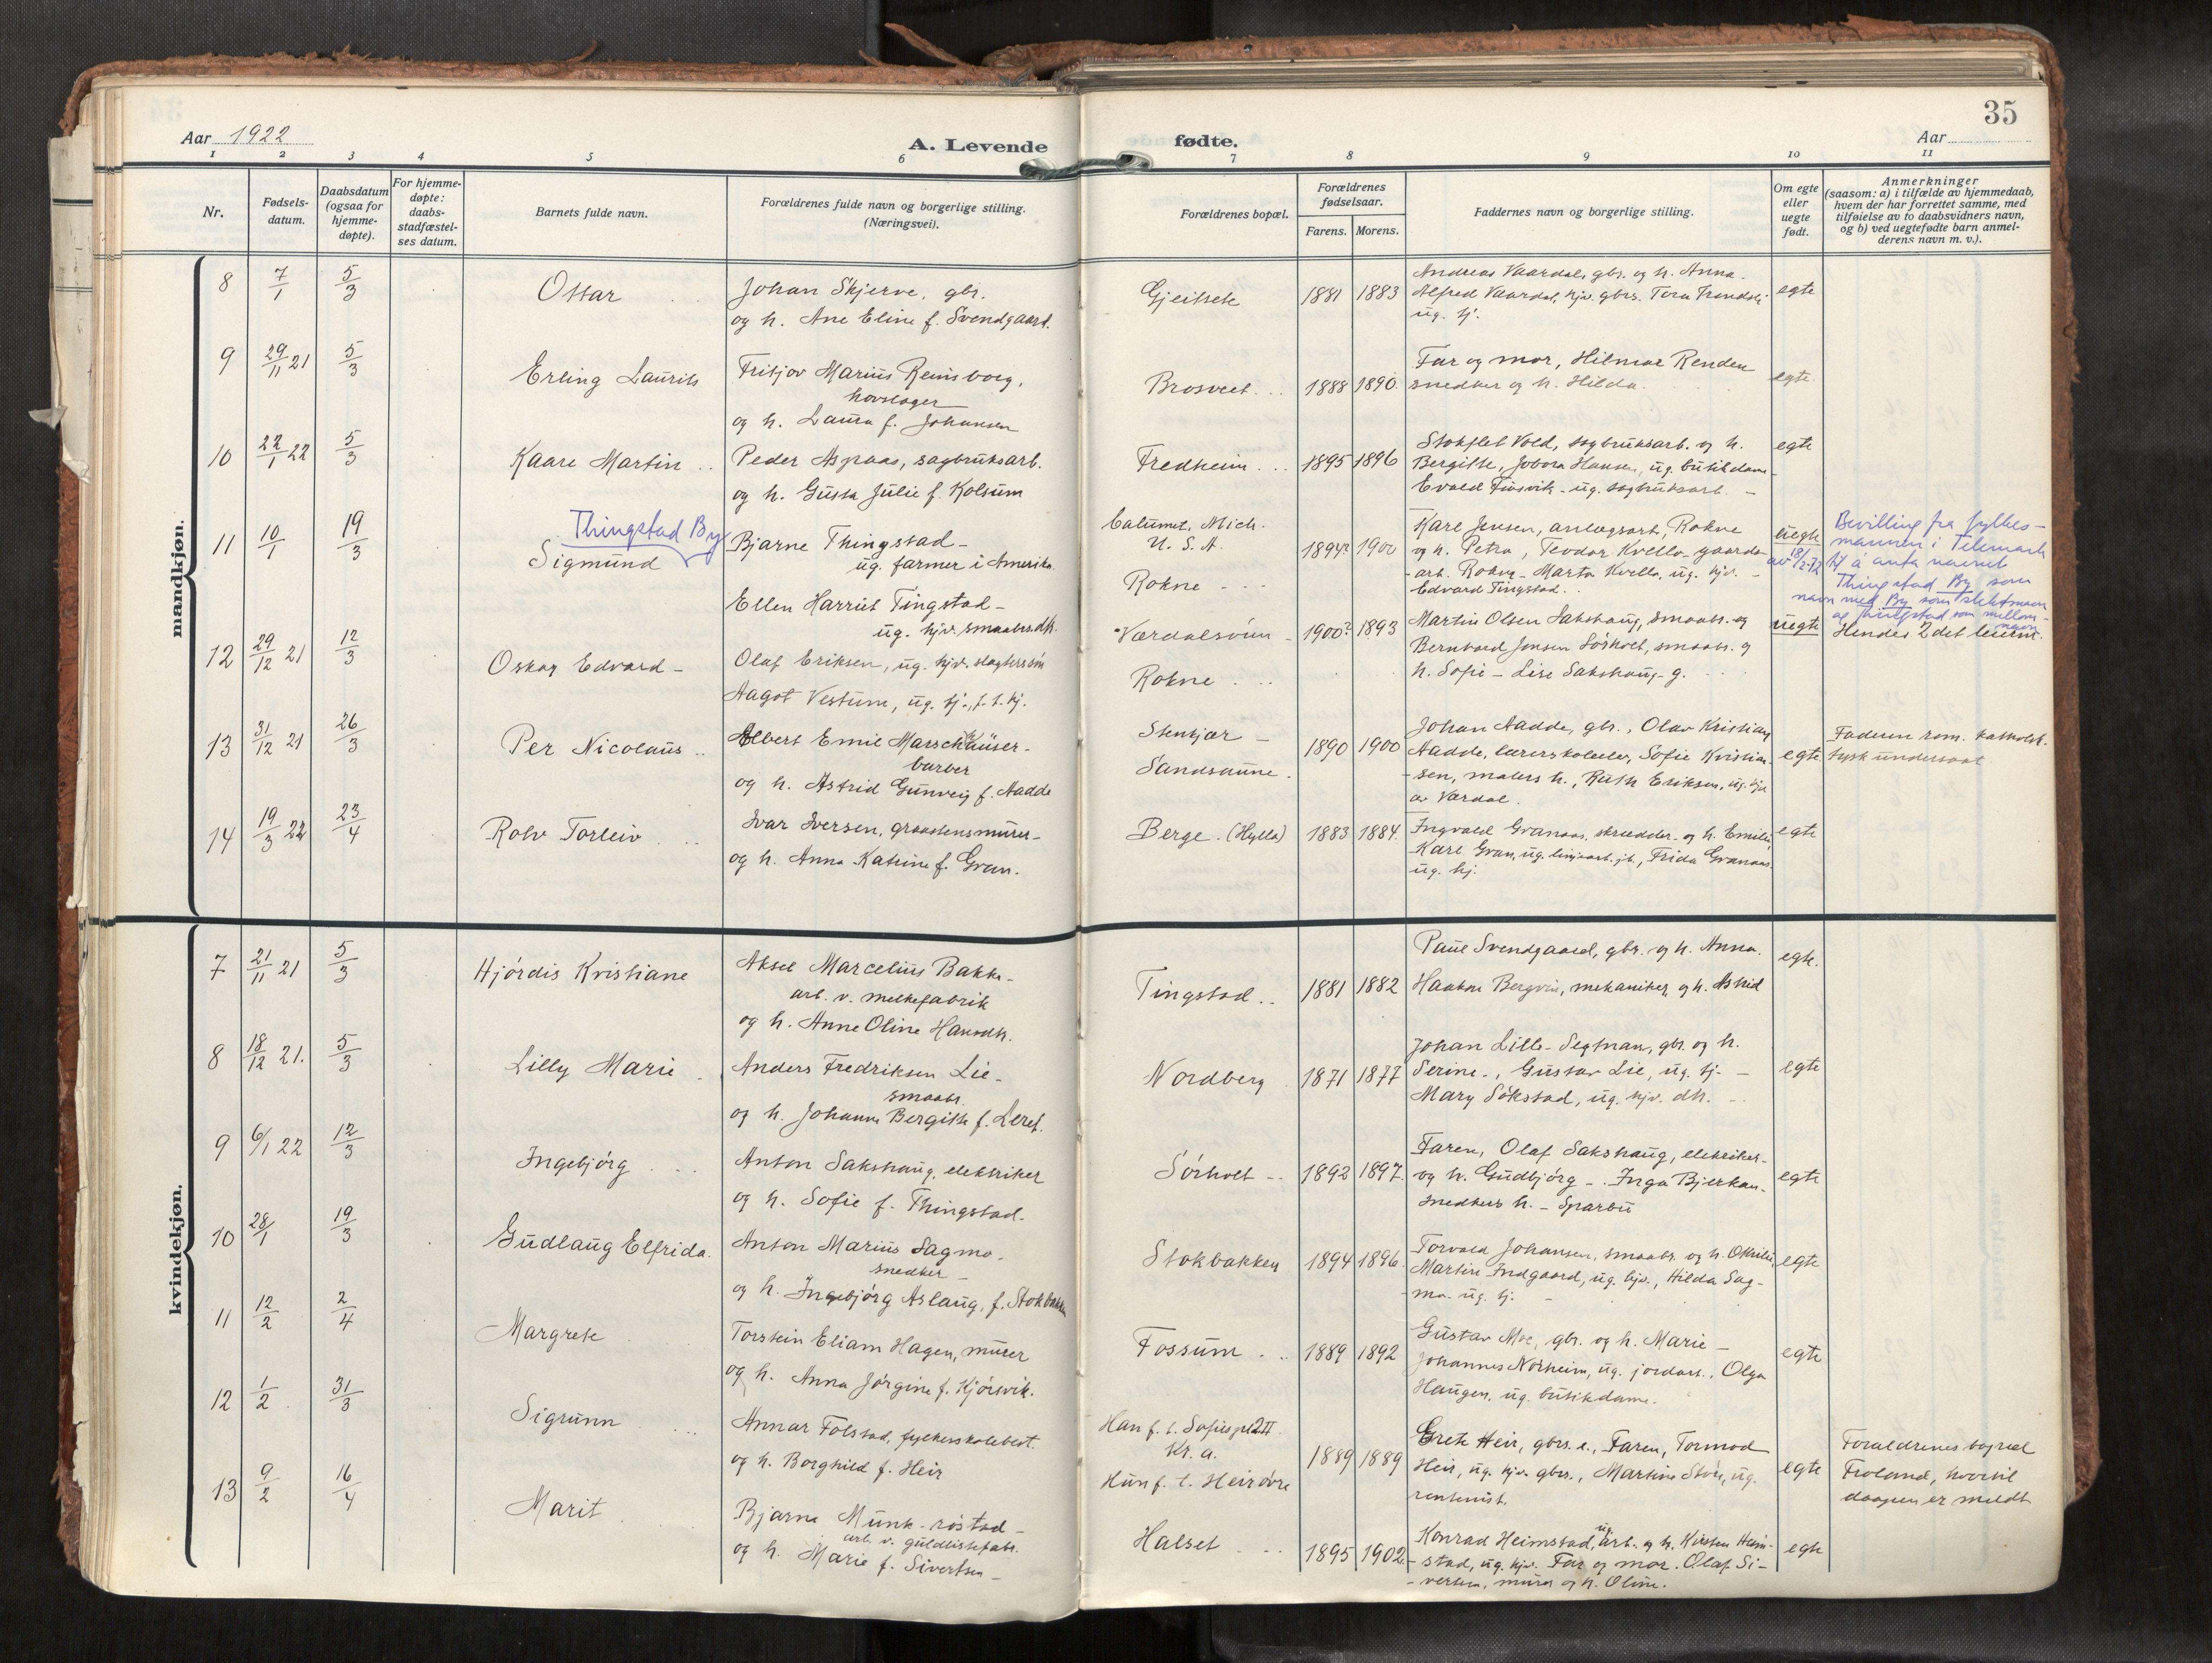 35
Aar 1922
A. Levende
fødte.
Aar
1 2 3 4 5 6 7 8 9 10 11
Nr.
Fødsels-
datum.
Daabsdatum
(ogsaa for
hjemme-
døpte).
For hjemme-
døpte:
daabs-
stadfæstel-
ses datum.
Barnets fulde navn.
Forældrenes fulde navn og borgerlige stilling.
(Næringsvei).
Forældrenes bopæl.
Forældrenes
fødselsaar.
Farens. Morens.
Faddernes navn og borgerlige stilling.
Om egte
eller
uegte
født.
Anmerkninger
(saasom: a) i tilfælde av hjemmedaab,
hvem der har forrettet samme, med
tilføielse av to daabsvidners navn,
og b) ved uegtefødte barn anmel-
derens navn m. v.).
mandkjøn.
8 7/1 5/3 Ottar
Johan Skjerve, gbr.
og h. Ane Eline f. Svendgaard.
Gjeitsete 1881 1883
Andreas Vaardal, gbr. og h. Anna.
Alfred Vaardal, hjv. gbrs. Tora
ug. tj.
egte
9 29/11 21 5/3 Erling Laurits
Fritjov Marius Reinsborg,
hovslager
og h. Laura f. Johansen
Brosveet 1888 1890.
Far og mor, Hilmar Renden
snedker og h. Hilda.
egte.
10 22/1 22 5/3 Kaare Martin
Peder Aspaas, sagbruksarb.
og h. Gusta Julie f. Kolsum
Fredheim 1895 1896
Stokflet Vold, sagbruksarb. og h.
Bergitte, Hansen, ug. butikdame
Evald Finsvik - ug. sagbruksarb.
egte
11 10/1 19/3 Thingstad By
Sigmund
Bjarne Thingstad -
ug. farmer i Amerika
Ellen Harriet Tingstad -
ug. hjv. smaabrs. dtr.
Calumet, Mich.
U. S. A.
Rokne
1894? 1900
Karl Jensen, anlægsarb., Rokne
og h. Petra, Teodor Kvello - gaards-
arb. Rokne - Marta Kvello, ug. hjv. -
Edvard Tingstad.
uegte
av 18/2-72
Bevilling fra fylkes-
mannen i Telemark
til å anta navnet
Thingstad By som
navn med By som slektsnavn
og Thingstad som mellom-
navn
12 29/12 21 12/3 Oskar Edvard -
Olaf Eriksen, ug. hjv. slagterssøn
Aagot Vestum, ug. tj., f. t. hj.
Værdalsøren
Rokne
1900? 1893
Martin Olsen Sakshaug, smaabr. og
Bernhard Jensen Sørholt, smaabr. og
h. Sofie - Lise Sakshaug - g.
uegte
Hendes 2det leierm.
13 31/12 21 26/3 Per Nicolaus
Albert Emil Marschhäuser -
barber
og h. Astrid Gunveig f. Aadde
Stenkjær -
Sandsaune.
1890 1900
Johan Aadde, gbr., Olav Kristian
Aadde, lærerskoleelev, Sofie Kristian-
sen, malers h., Ruth Eriksen, ug. hjv
av Værdal.
egte
Faderen rom. katholsk.
tysk undersaat
14 19/3 22 23/4 Rolv Torleiv
Ivar Iversen, graastensmurer -
og h. Anna Katrine f. Gran.
Berge. (Hylla) 1883 1884.
Ingvald Granaas, skrædder. og h. Emilie,
Karl Gran, ug. linjearb. jb., Frida Granaas
ug. hj.
egte
kvindekjøn.
7 21/11 21 5/3 Hjørdis Kristiane
Aksel Marcelius Bakke -
arb. v. melkefabrik
og h. Anne Oline Hansdtr.
Tingstad 1881 1882
Paul Svendgaard, gbr. og h. Anna.
Haakon Bergvin, mekaniker, og h. Astrid
egte.
8 18/12 21. 5/3 Lilly Marie
Anders Fredriksen Lie -
smaabr.
og h. Johanna Bergitte f. Leret.
Nordberg 1871 1877
Johan Lille-Segtnan, gbr. og h.
Serine., Gustav Lie, ug. tj. -
Mary Sokstad, ug. hjv. dtr.
egte
9 6/1 22 12/3 Ingebjørg
Anton Sakshaug, elektriker
og h. Sofie f. Thingstad.
Sørholt 1892 1897.
Faren, Olaf Sakshaug, elektriker -
og h. Gudbjørg -. Inga Bjerkan -
snedkers h. - Sparbu
egte
10 28/1 19/3 Gudlaug Elfrida.
Anton Marius Sagmo -
snedker -
og h. Ingebjørg Aslaug, f. Stokbakken
Stokbakken 1894 1896.
Torvald Johansen, smaabr. og h. Othilie,
Martin Indgaard, ug. hjv., Hilda Sag-
mo. ug. tj.
egte
11 12/2 2/4 Margrete
Torstein Eliam Hagen, murer
og h. Anna Jørgine f. Hjørsvik.
Fossum 1889 1892
Gustav Moe, gbr. og h. Marie -
Johannes Norheim, ug. jordarb., Olga
Haugen, ug. butikdame.
egte
12 1/2 31/3 Sigrunn
Annar Folstad, fylkesskolebest.
og h. Borghild f. Heir
Han f. t. Sofiespl 2 II
Kr. a.
Hun f. t. Heir øvre
1889 1889
Grete Heir, gbrs. e., Faren, Tormod
Heir, ug. hjv. gbrs., Martine Støre, ug.
rentenist.
egte
Forældrenes bopæl
Froland, hvortil
daapen er meldt
13 9/2 16/4 Marit
Bjarne Munk-røstad -
arb. v. guldlistefabr.
og h. Marie f. Sivertsen -
Halset 1895 1902.
Konrad Heimstad, ug. arb. og h. Kirsten Heim-
stad, ug. hjv. Far og mor. Olaf Si-
vertsen, murer og h. Oline.
egte